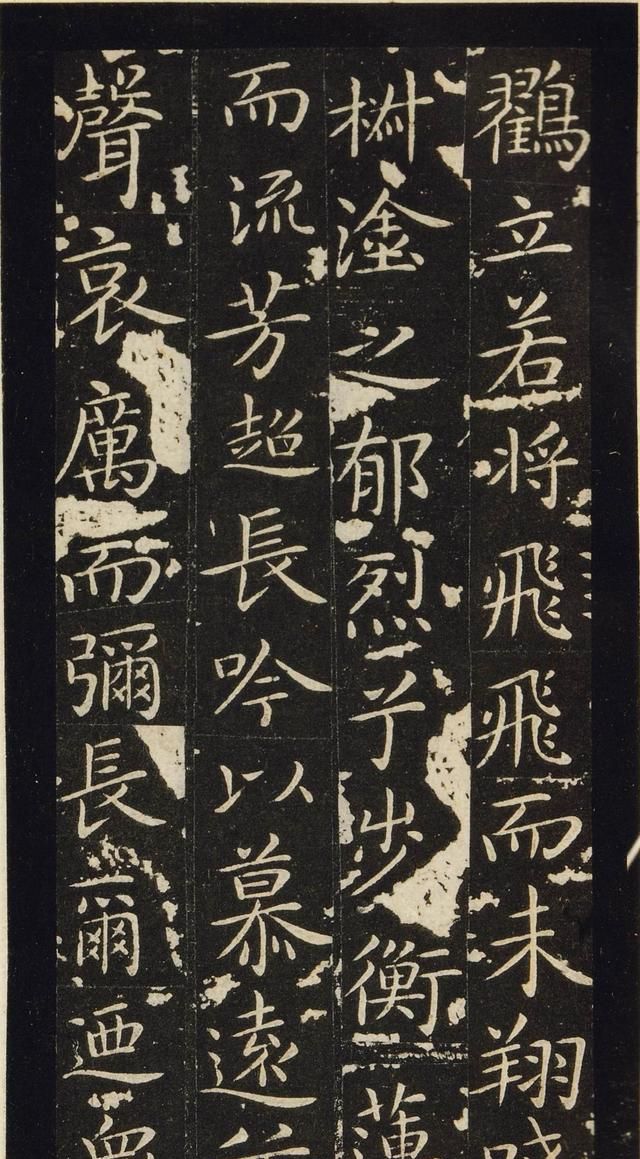 鶴立若将飛飛而未翔
椒塗之郁烈兮步衡薄
而流芳超長吟以慕遠
聲哀厲而彌長爾迺